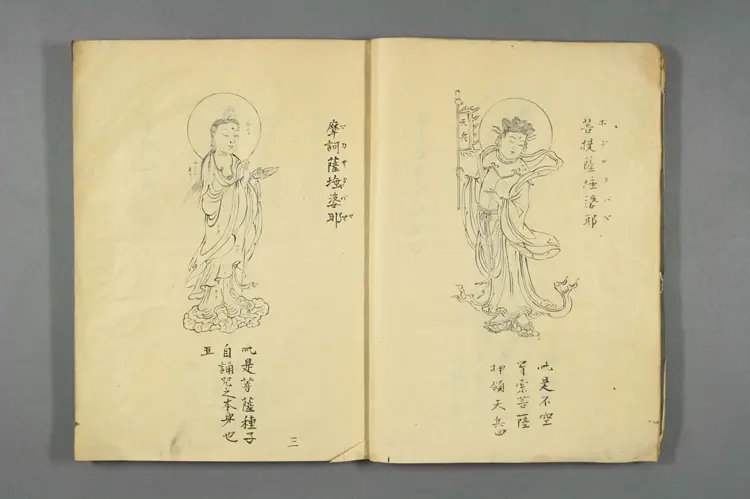 菩提薩埵婆耶
天兵
此是不空
罥索菩薩
押領天兵四
摩訶薩埵婆耶
此是菩薩種子
自誦呪之本身也
五
三